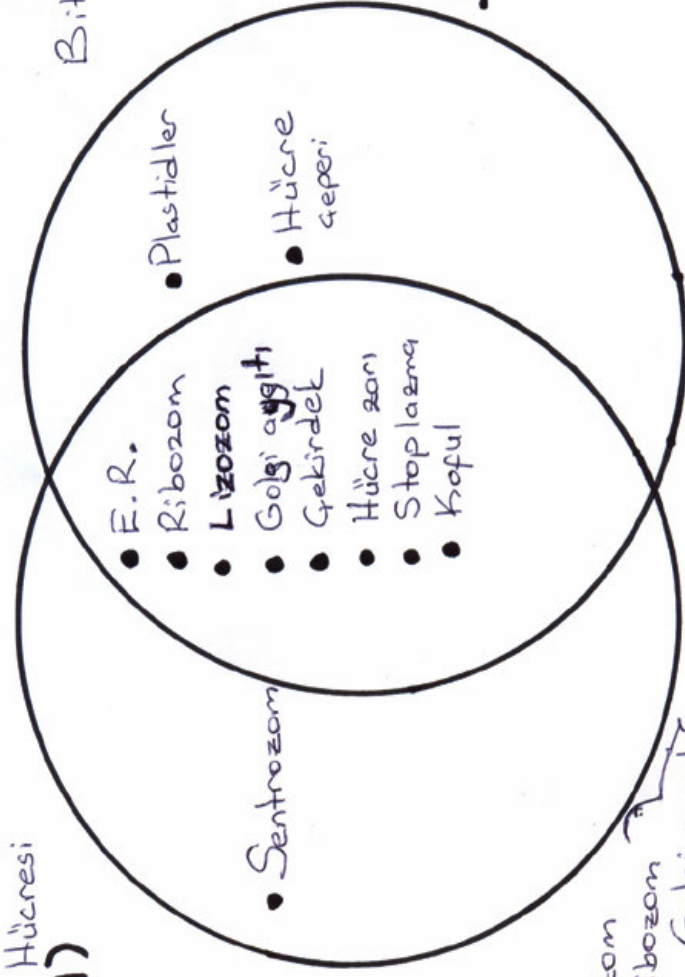 Hücresi
Bit
• Sentrozom
• E.R.
• Ribozom
• Lizozom
• Golgi aygıtı
• Çekirdek
• Hücre zarı
• Stoplazma
• Koful
• Plastidler
• Hücre
çeperi
zom
bozom